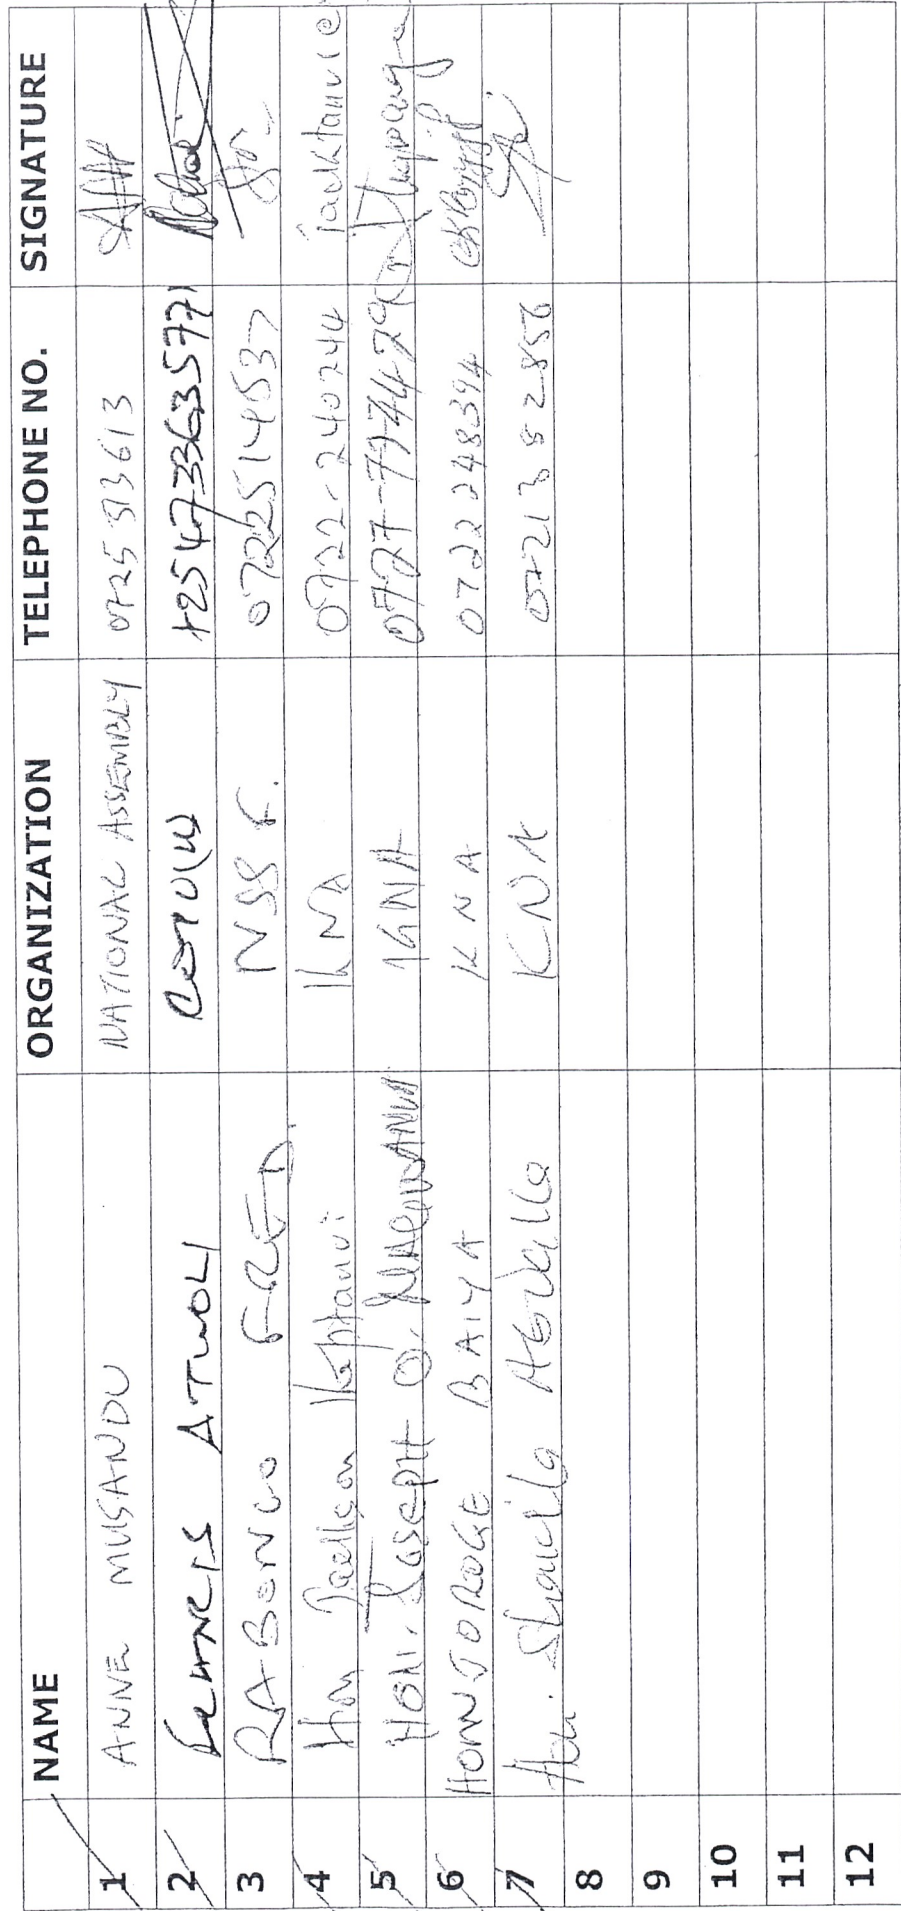 NAME ORGANIZATION TELEPHONE NO. SIGNATURE
1 ANNE MUSANDU NATIONAL ASSEMBLY 0725 513613
2 FRANCIS ATWOLI COTU(K) +254733635771
3 RABONGO FRED. NSSF. 0722514537
4 Hon Jackson Kiptanui KNA 0722-240244
5 HON. JOSEPH O. KNA
6 HON NJOROGE BAIYA KNA 0722 248394
7 Hon. Shakila Abdalla KNA 0721382856
8
9
10
11
12